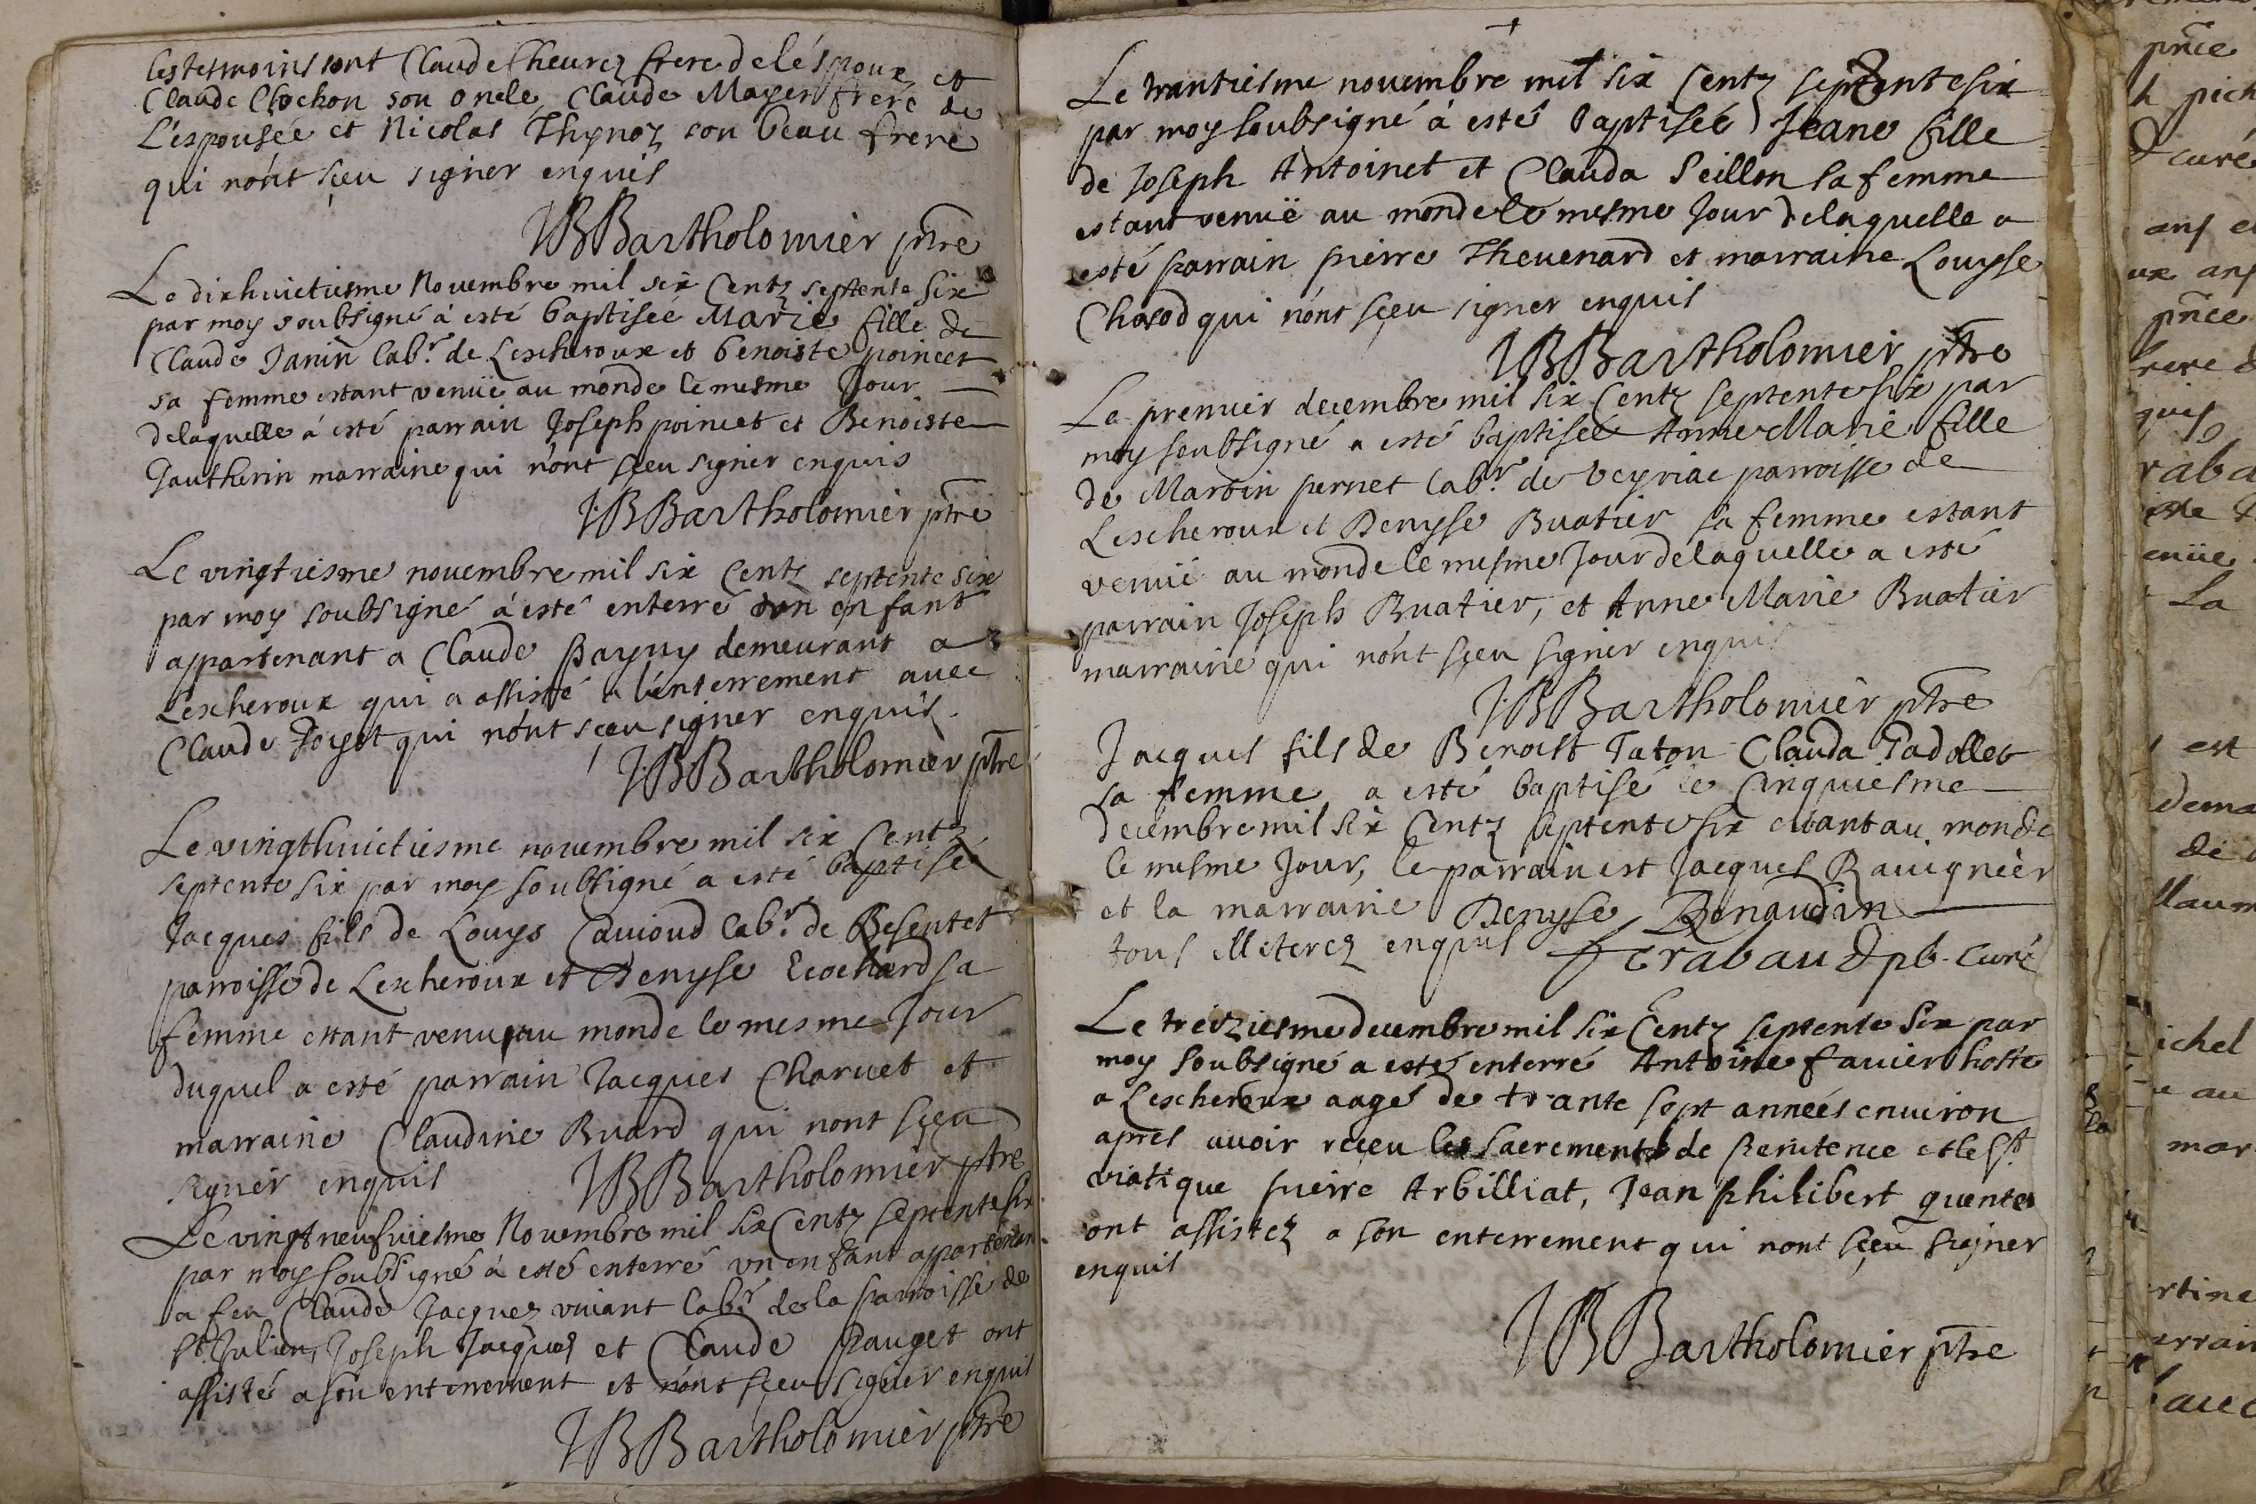 Les tesmoins sont Claude Cheurez frere de léspoux et
Claude Clochon son oncle, Claude Mayer frere de
L'espousée et Nicolas Thynoz son beau frere
qui nónt sçeu signer enquis
JBBartholomier ptre
Le dixhuictiesme Novembre mil six Centz septente six
par moy soubsigné à esté baptiseé Marie fille de
Claude Janin labr. de Lescheroux et benoiste poincet
sa femme estant venüe au monde le mesme Jour
delaquelle á esté parrain Joseph poincet et Benoiste
Jautherin marraine qui nónt sçeu signer enquis
J:BBartholomier ptre
Le vingtiesme novembre mil six Centz septente six
par moy soubsigné á esté enterré un enfant
appartenant a Claude Payny demeurant a
Lescheroux qui a assisté a lénterrement avec
Claude Foyot qui nónt sçeu signer enquis.
J:B:Bartholomier ptre
Le vingthuictiesme novembre mil six Centz
septente six par moy soubsigné a esté baptisé
Jacques fils de Louys Cauioud labr. de Besentet
parroisse de Lescheroux et Denyse Ecochard sa
femme estant venu au monde le mesme Jour
duquel a esté parrain Jacques Charuet et
marraine Claudine Buard qui nont sçeu
signer enquis JBBartholomier ptre
Le vingt neufuiesme Novembre mil six Centz septente six
par moy soubsigné à esté enterré un enfant appartenan
a feu Claude Jacques viuant labr. de la parroisse de
St. Julien, Joseph Jacques et Claude Pauget ont
assisté a son enterrement et nónt sçeu signer enquis
JBBartholomier ptre
Le trantiesme novembre mil six Centz septente six
par moy soubsigné à esté baptiseé Jeane fille
de Joseph Antoinet et Clauda Seillon sa femme
estant venuë au monde le mesme Jour delaquelle a
esté parrain pierre Thevenard et marraine Louyse
Chasod qui nónt sçeu signer enquis
JBBartholomier ptre
Le premier decembre mil six Centz septente six par
moy soubsigné a esté baptiseé Anne Marie fille
de Martin pernet labr. de Veyriac parroisse de
Lescheroux et Denyse Buatier sa femme estant
venuë au monde le mesme Jour delaquelle a esté
parrain Joseph Buatier, et Anne Marie Buatier
marraine qui nónt sçeu signer enquis
J:BBartholomier ptre
Jacques fils de Benoist Taton Clauda Padollet
sa femme a esté baptisé le Cinquiesme
decembre mil six Centz septente six estant au monde
le mesme Jour, le parrain est Jacques Rauigneèr
et la marraine Denyse Renaudin
tous illiterez enquis Trabaud pb. curé
Le treiziesme decembre mil six Centz septente six par
moy soubsigné a esté enterré Antoine favier hoste
a Lescheroux aagé de trante sept anneés enuiron
apres avoir reçeu les sacrements de Penitence et le St.
viatique pierre Arbilliat, Jean philibert quentes
ont assistez a son enterrement qui nont sçeu signer
enquis
JBBartholomier ptre
pñce
pich
curé
ans
ans
pñce
quis
enüe
La
est
dema
de
ichel
au
mar